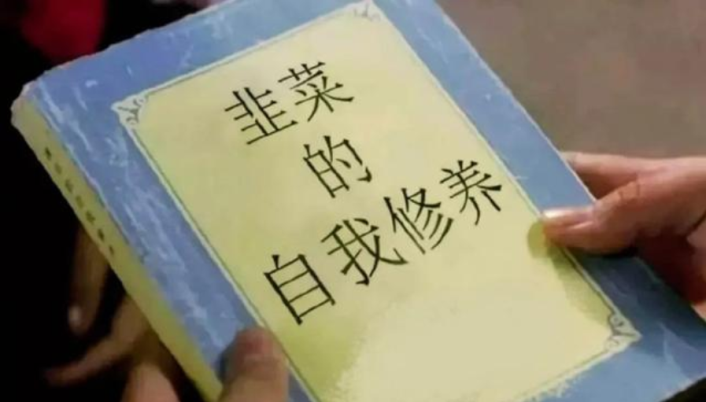 韭菜
的
自我修养